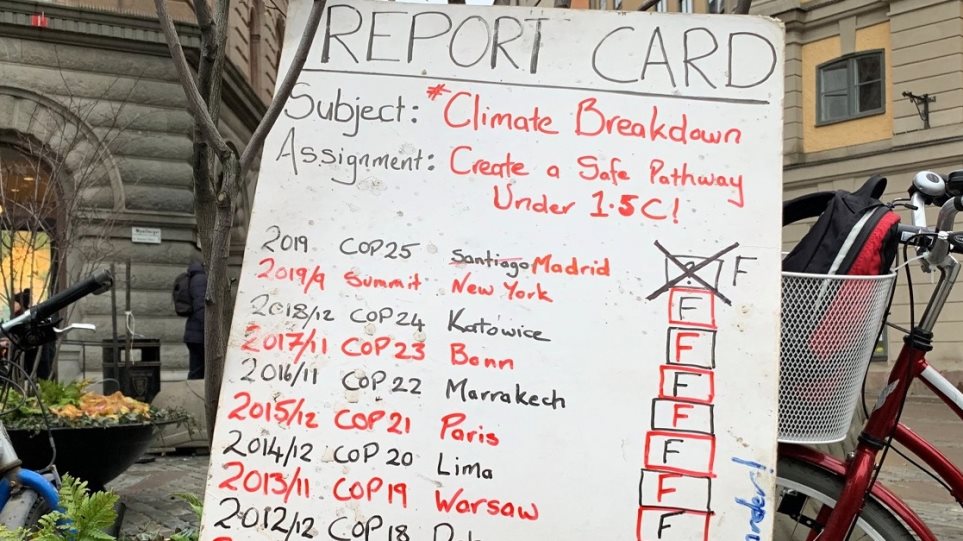 REPORT CARD
Subject: #Climate Breakdown
Assignment: Create a Safe Pathway
Under 1.5C!
2019 COP25 Santiago Madrid F
2019/9 Summit New York F
2018/12 COP24 Katowice F
2017/11 COP23 Bonn F
2016/11 COP22 Marrakech F
2015/12 COP21 Paris F
2014/12 COP20 Lima F
2013/11 COP19 Warsaw F
2012/12 COP18